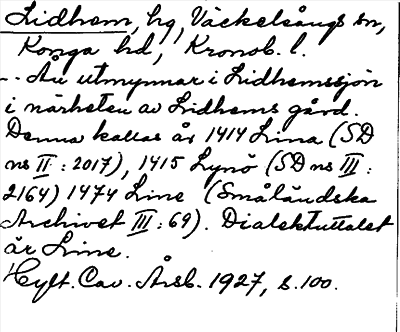 Lidhem, hg, Väckelsångs sn,
Konga hd, Kronob. l.
-- Ån utmynnar i Lidhemssjön
i närheten av Lidhems gård.
Denna kallas år 1414 Lina (SD
ns II: 2017), 1415 Lynö (SD ns III:
2164) 1474 Line (Småländska
Archivet III: 69). Dialektuttalet
är Line.
Hylt. Cav. Årsb. 1927, s. 100.